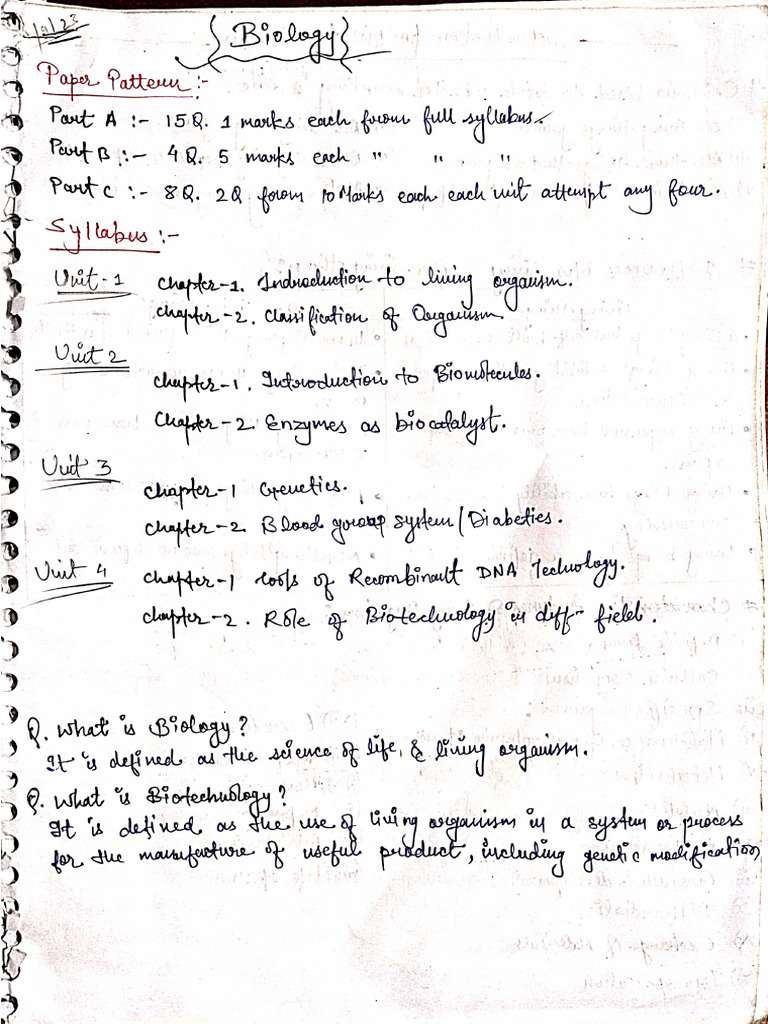 {Biology}
Paper Pattern :-
Part A :- 15 Q. 1 marks each from full syllabus.
Part B :- 4 Q. 5 marks each " " "
Part C :- 8 Q. 2Q from 10 Marks each each unit attempt any four.
Syllabus :-
Unit-1 Chapter-1. Introduction to living organism.
Chapter-2. Classification of Organism.
Unit 2
Chapter-1. Introduction to Biomolecules.
Chapter-2. Enzymes as biocatalyst.
Unit 3
Chapter-1 Genetics.
Chapter-2 Blood group system / Diabeties.
Unit 4 Chapter-1 tools of Recombinant DNA Technology.
Chapter-2. Role of Biotechnology in diff- field.
Q. What is Biology?
It is defined as the science of life, & living organism.
Q. What is Biotechnology?
It is defined as the use of living organism in a system or process
for the manufacture of useful product, including genetic modification